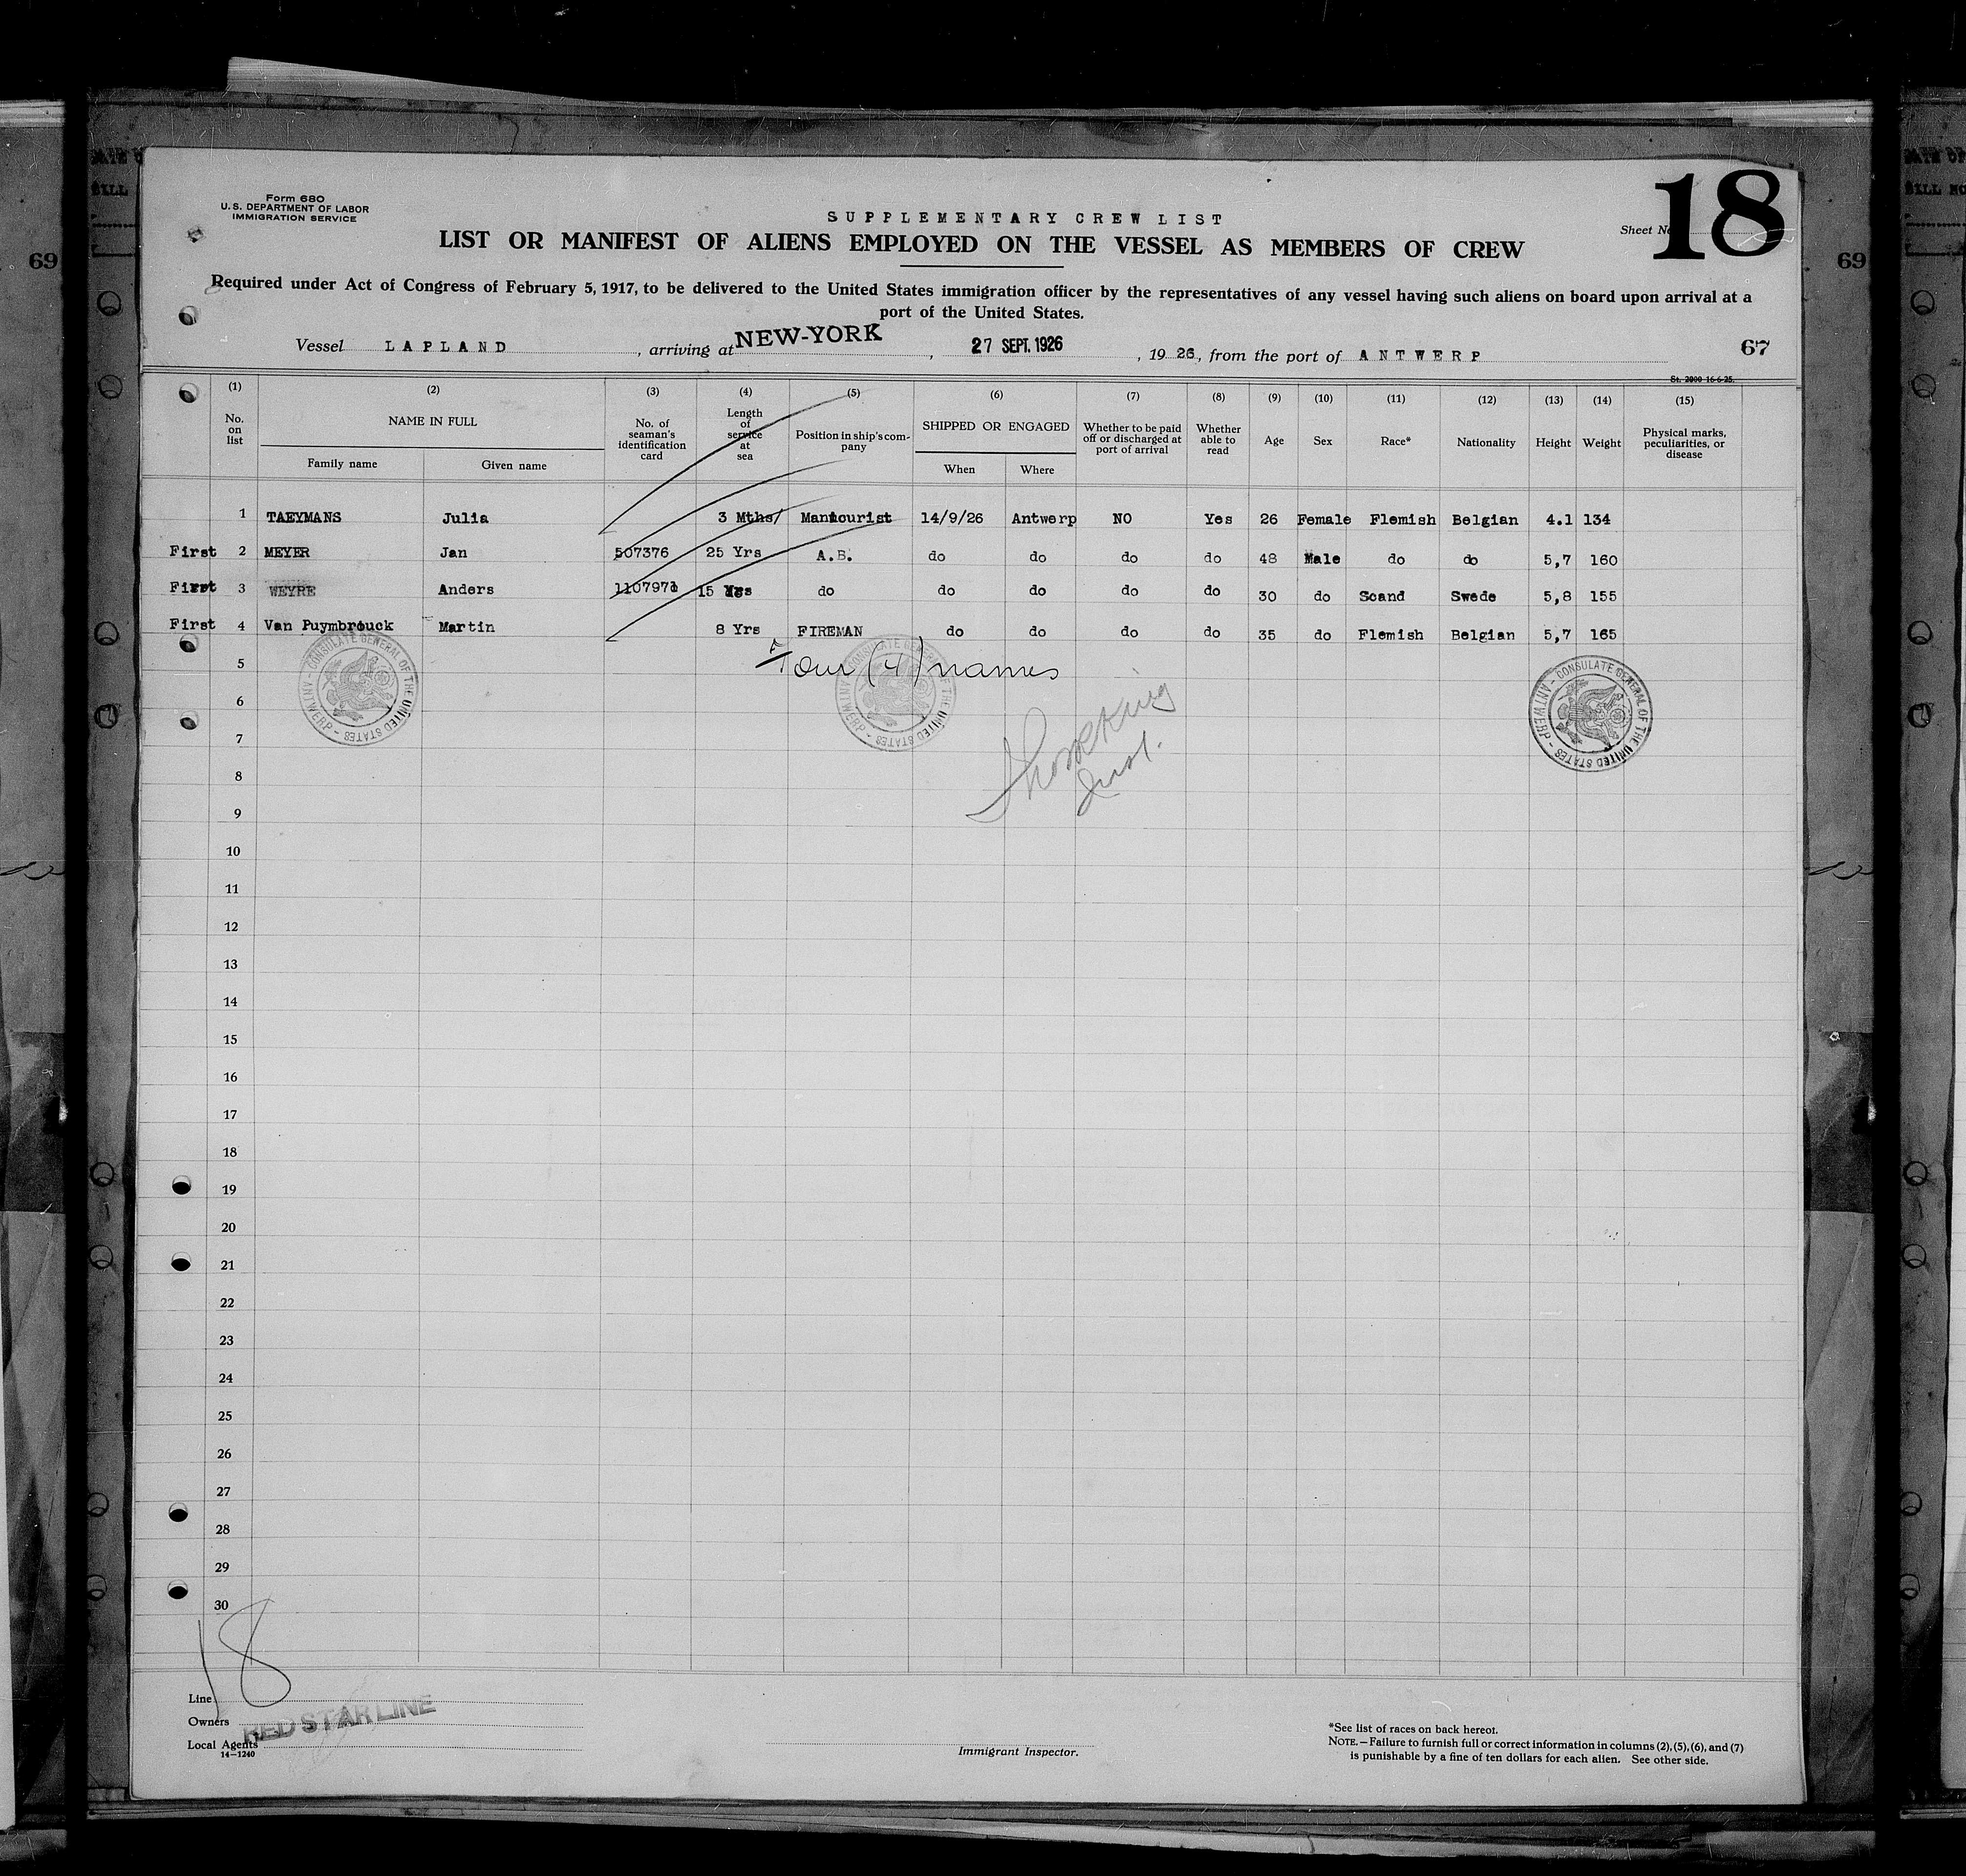 Form 680
U.S. DEPARTMENT OF LABOR
IMMIGRATION SERVICE
18
SUPPLEMENTARY CREW LIST
Sheet No
LIST OR MANIFEST OF ALIENS EMPLOYED ON THE VESSEL AS MEMBERS OF CREW
Required under Act of Congress of February 5, 1917, to be delivered to the United States immigration officer by the representatives of any vessel having such aliens on board upon arrival at a
port of the United States.
Vessel LAPLAND, arriving at NEW-YORK, 27 SEPT. 1926, 19 26, from the port of ANTWERP 67
St. 2000 16-6-25.
(1) (2) (3) (4) (5) (6) (7) (8) (9) (10) (11) (12) (13) (14) (15)
No. on list NAME IN FULL No. of seaman's identification card Length of service at sea Position in ship's company SHIPPED OR ENGAGED Whether to be paid off or discharged at port of arrival Whether able to read Age Sex Race* Nationality Height Weight Physical marks, peculiarities, or disease
Family name Given name When Where
1 TAEYMANS Julia 3 Mths/ Manicurist 14/9/26 Antwerp NO Yes 26 Female Flemish Belgian 4.1 134
First 2 MEYER Jan 507376 25 Yrs A.B. do do do do 48 Male do do 5,7 160
First 3 WEYRE Anders 1107971 15 Yrs do do do do do 30 do Scand Swede 5,8 155
First 4 Van Puymbrouck Martin 8 Yrs FIREMAN do do do do 35 do Flemish Belgian 5,7 165
5 Four (4) names
CONSULATE GENERAL OF THE UNITED STATES - ANTWERP -
CONSULATE GENERAL OF THE UNITED STATES - ANTWERP -
CONSULATE GENERAL OF THE UNITED STATES - ANTWERP -
6
7
8
9
10
11
12
13
14
15
16
17
18
19
20
21
22
23
24
25
26
27
28
29
30
18
Line
Owners RED STAR LINE
Local Agents
14—1240
Immigrant Inspector.
*See list of races on back hereof.
NOTE.—Failure to furnish full or correct information in columns (2), (5), (6), and (7)
is punishable by a fine of ten dollars for each alien. See other side.
69
69